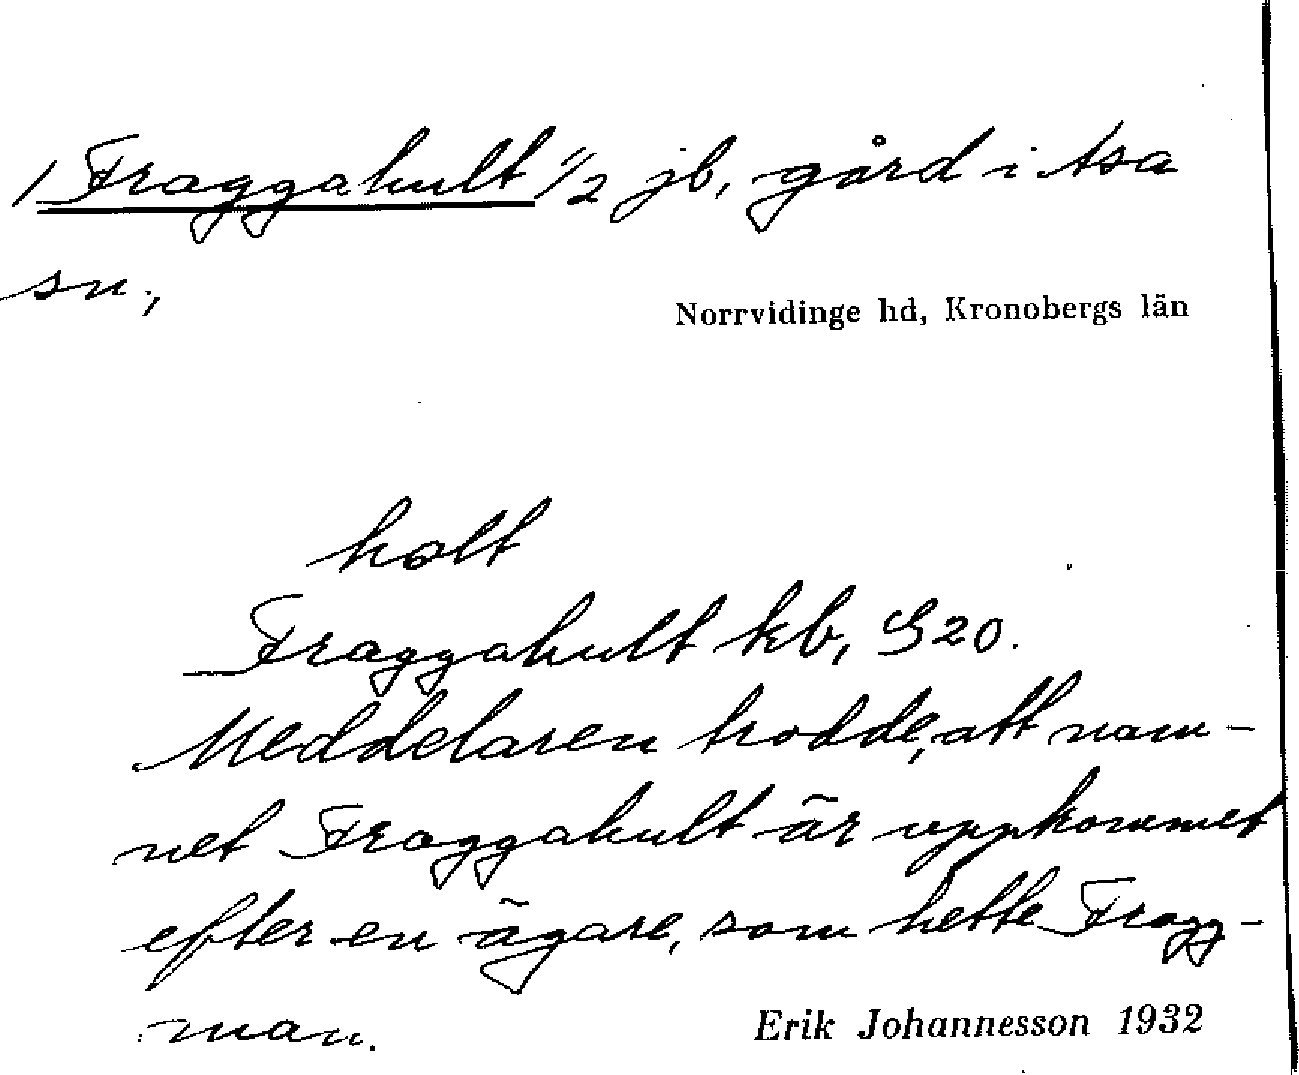 1 Fraggahult 1/2 jb, gård i Asa
sn,
Norrvidinge hd, Kronobergs län
holt
Fraggahult kb, S20.
Meddelaren trodde, att nam-
net Fraggahult är uppkommet
efter en ägare, som hette Fragg-
man.
Erik Johannesson 1932